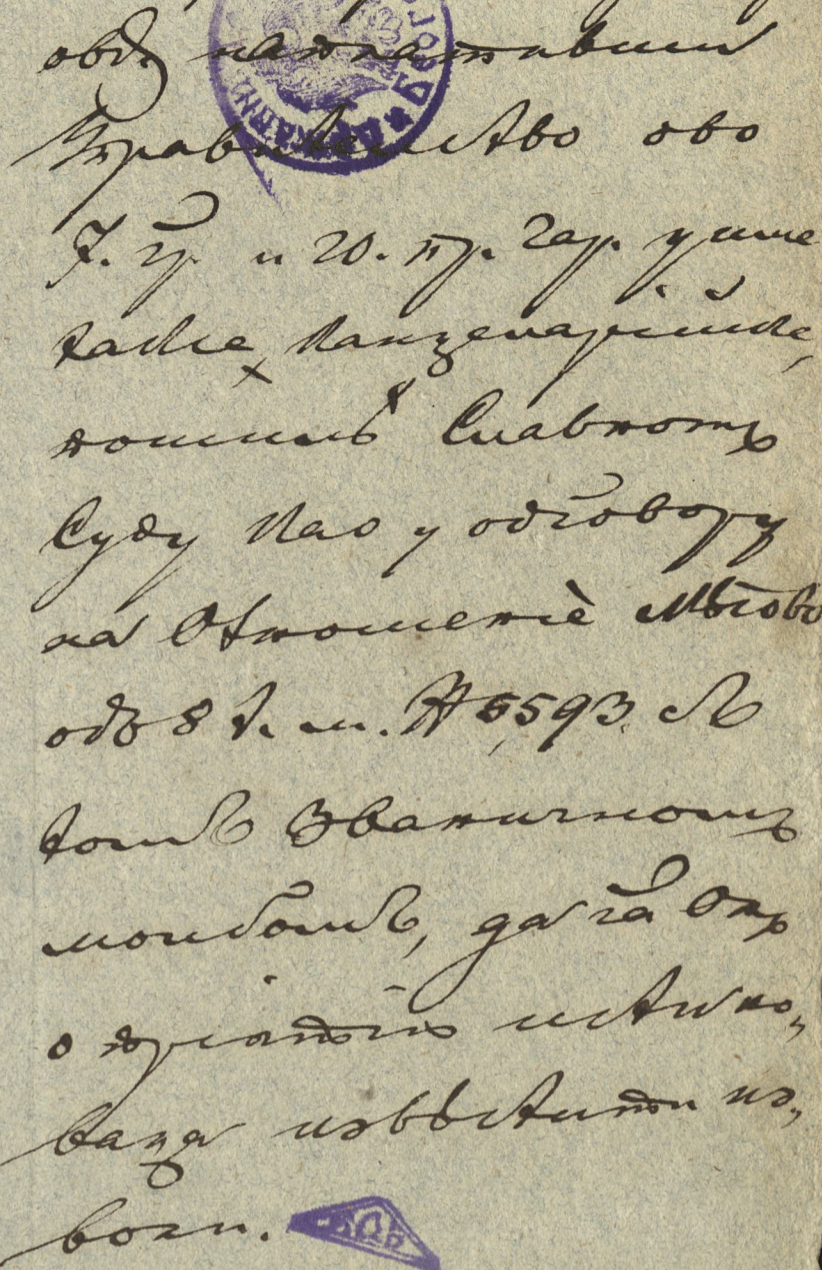 овд наплативши
Правителство ово
7. гр. и 20. кр. чар. у име
таксе Канцеларійске,
шилѣ Славномъ
Суду Као у одговору
на Отношеніе нѣгово
одъ 8 т. м. № 6593. съ
томъ Званичномъ
молбомъ, да га Онъ
о пріятію истиі но„
ваца извѣстити из„
воли.